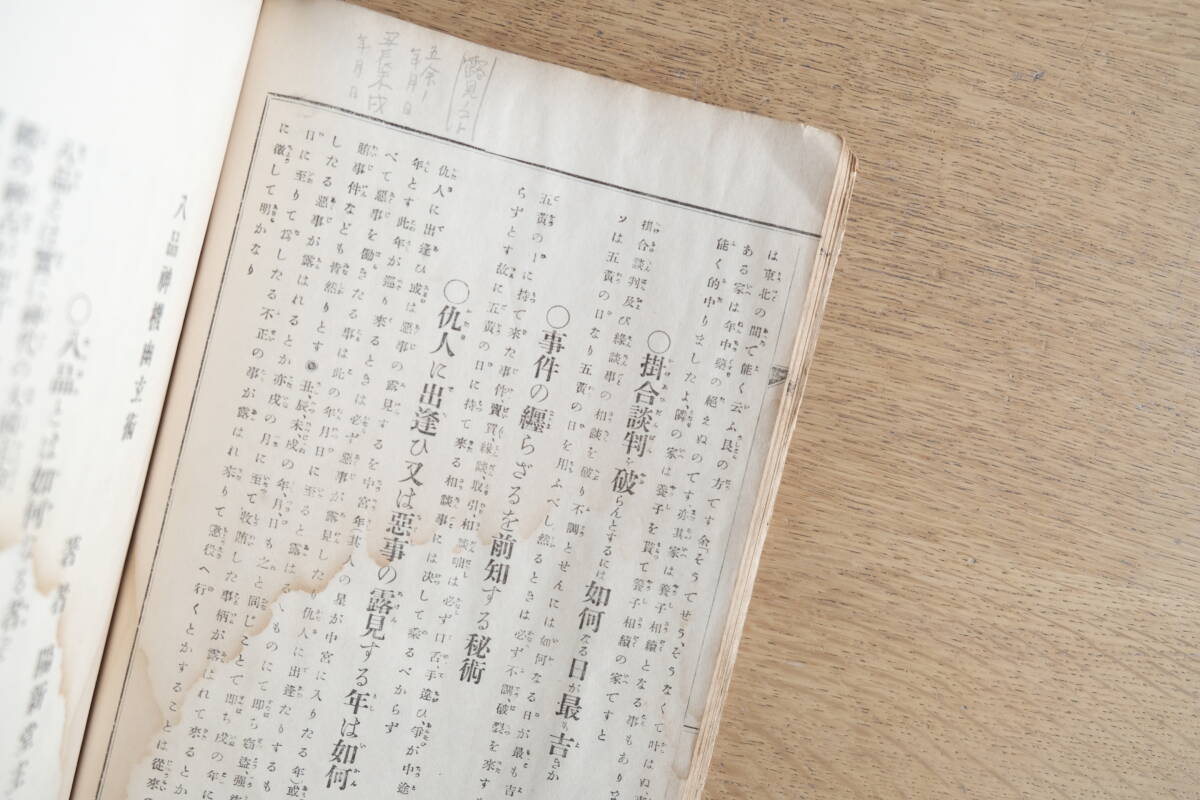 は東北の間で能く云ふ艮の方です金「そうでせう、そうなくて叶はぬ
ある家は年中病の絶えぬのです、亦其家は養子相續となる事もあり
能く的中りましたよ、隣の家は養子を貰て養子相續の家ですと
〇掛合談判を破らんとするには如何なる日が最も吉きか
掛合談判及び縁談事の相談を破り不調とせんには如何なる日が最も吉
ソは五黄の日なり五黄の日を用ふべし然るときは必ず不調破裂を來す
〇事件の纏らざるを前知する秘術
五黄の日に持て来た事件賣買、縁談、取引、相談は必ず口舌、手違ひ、爭が中途
らずとす故に五黄の日に持て来る相談事には決して乘るべからず
〇仇人に出逢ひ又は惡事の露見する年は如何
仇人に出逢ひ或は惡事の露見するを中宮年(其人の星が中宮に入りたる年)或
年とす此年が巡り來るときは必ず惡事が露見したり仇人に出逢たりするも
べて惡事を働きたる事は此の年月日に至ると露はるゝものにて即ち窃盗、強
賄事件なども皆然りとす◎丑、辰、未、戌の年、月、日も之と同じことて即ち戌の年に
したる惡事が露はれるとか亦戌の月に至て收賄した事柄が露はれて來るとか
日に至りて爲したる不正の事が露はれ來りて懲役へ行くとかすることは從來の
に徵して明かなり
露見スルト
五余ノ
年月日
丑辰未戌
年月日
八品神機幽玄術
〇八品とは如何なる者